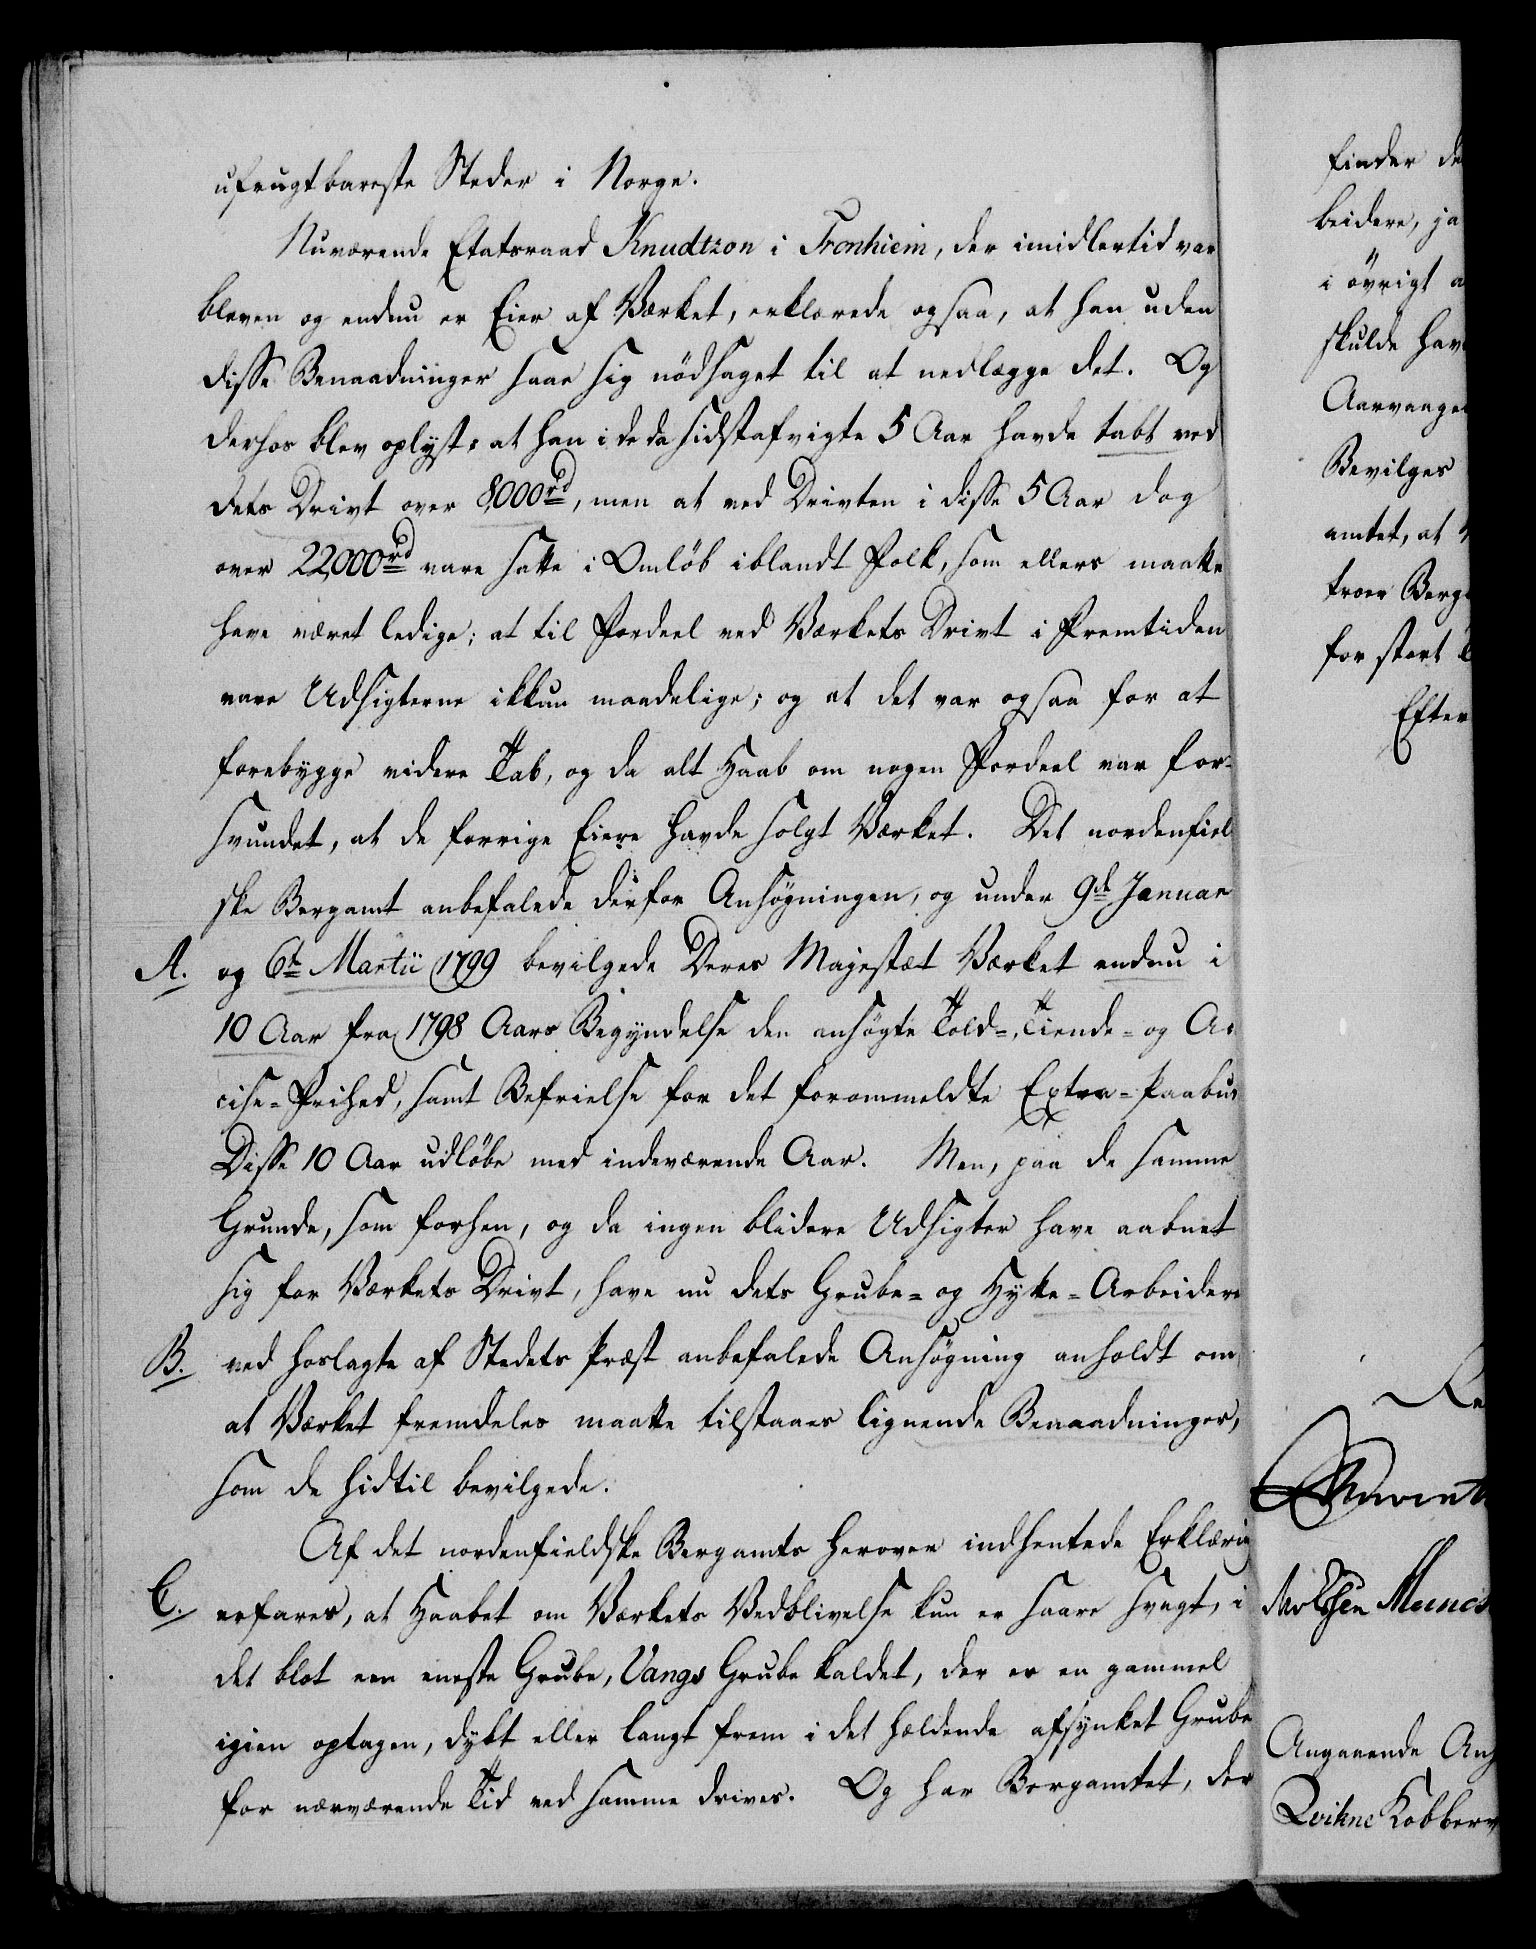 ufrugtbareste Steder i Norge.
Nuværende Etatsraad Knudtzon i Tronhiem, der imidlertid var
bleven og endnu er Eier af Værket, erklærede ogsaa, at han uden
disse Benaadninger saae sig nödsaget til at nedlægge det. Og
derhos blev oplyst: at han i de da sidstafvigte 5 Aar havde tabt ved
dets Drivt over 8,000rd, men at ved Drivten i disse 5 Aar dog
over 22,000rd vare satte i Omlöb iblandt Folk, som ellers maatte
have været ledige; at til Fordeel ved Værkets Drivt i Fremtiden
vare Udsigterne ikkun maadelige; og at det var ogsaa for at
forebygge videre Tab, og da alt Haab om nogen Fordeel var for-
svundet, at de forrige Eiere havde solgt Værket. Det nordenfiel
ske Bergamt anbefalede derfor Ansögningen, og under 9de Januar
A. og 6te Martii 1799 bevilgede Deres Majestæt Værket endnu i
10 Aar fra 1798 Aars Begyndelse den ansögte Told-, Tiende- og Ac
cise-Frihed, samt Befrielse for det forommeldte Extra-Paabud
Disse 10 Aar udlöbe med indeværende Aar. Men, paa de samme
Grunde, som forhen, og da ingen blidere Udsigter have aabnet
sig for Værkets Drivt, have nu dets Grube- og Hytte-Arbeidere
B. ved hoslagte af Stedets Præst anbefalede Ansögning anholdt om
at Værket fremdeles maatte tilstaaes lignende Benaadninger,
som de hidtil bevilgede.
Af det nordenfieldske Bergamts herover indhentede Erklæring
C. erfares, at Haabet om Værkets Vedblivelse kun er saare svagt, i
det blot een eneste Grube, Vangs Grube kaldet, der er en gammel
igien optagen, dybt eller langt frem i det hældende afsynket Grube
for nærværende Tid ved samme drives. Og har Bergamtet, der
finder de
beidere, ja
i övrigt a
skulde hav
Aarvaagen
Bevilges
amtet, at
troer Berg
for stort
Efter
Re
Angaaende Ans
Qvikne Kobberv